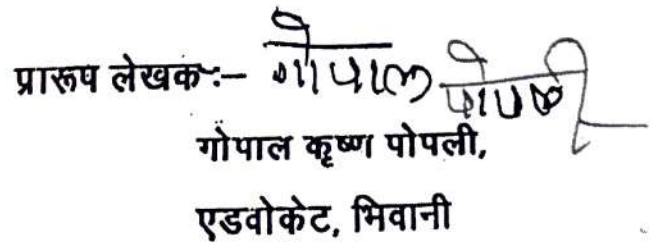 प्रारूप लेखक :- गोपाल पोपली
गोपाल कृष्ण पोपली,
एडवोकेट, भिवानी